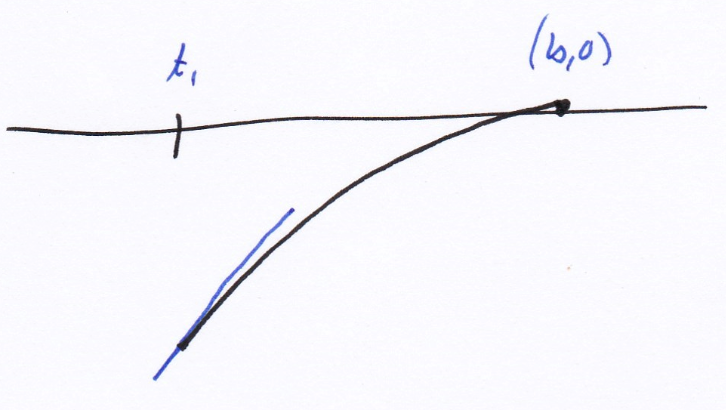 t₁
(b,0)